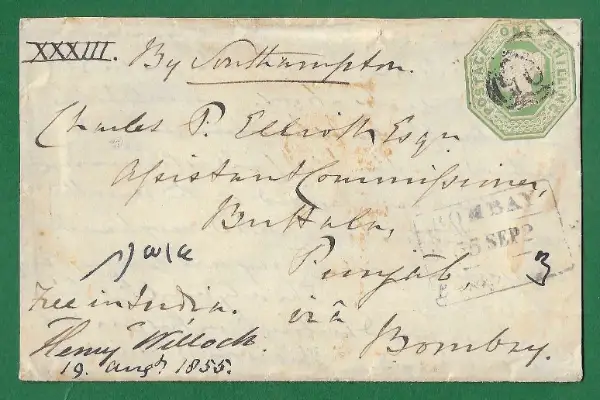 XXXIII.
By Southampton.
POSTAGE ONE SHILLING
Charles P. Elliott Esqr
Assistant Commissioner,
Buttala,
Punjâb
BOMBAY
55 SEP 2
3
Free in India.
viâ
Henry Willock.
Bombay.
19. augt. 1855.